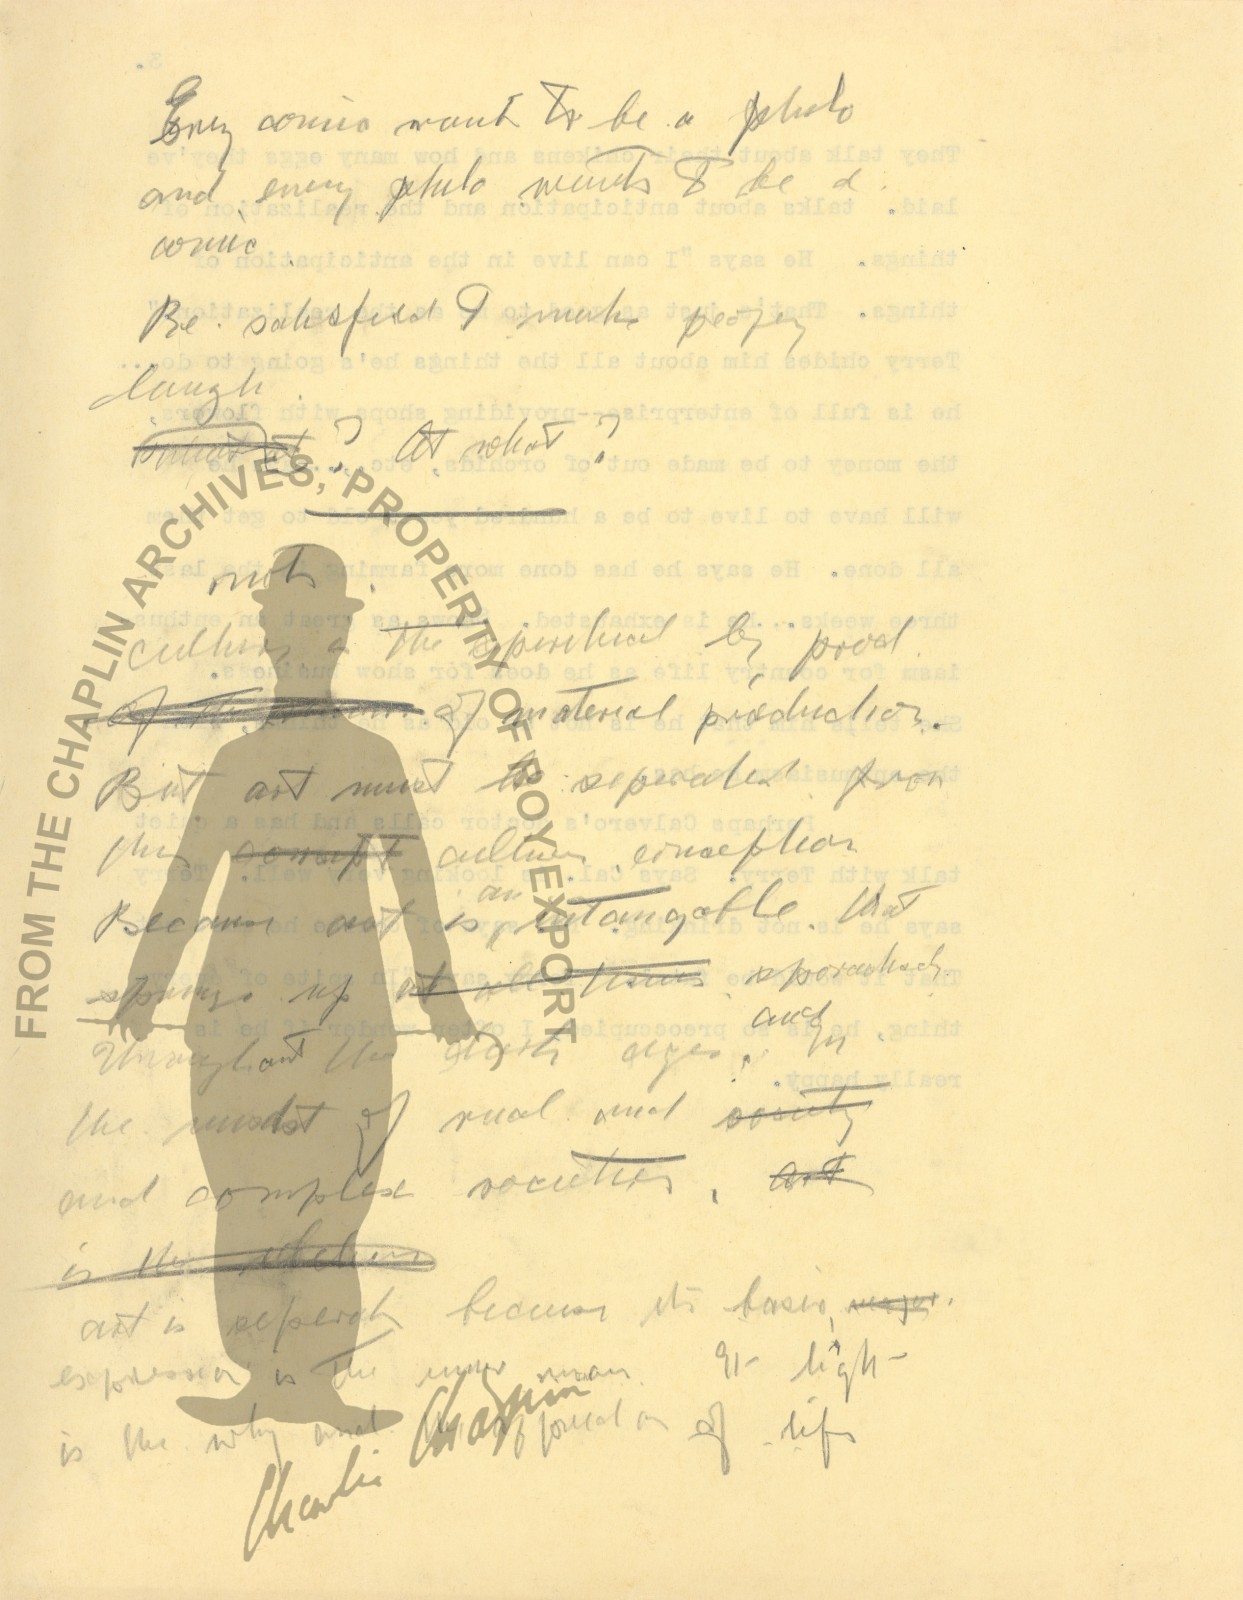 Every comic want to be a philo
and every philo wants to be a
comic
Be satisfied I make people
laugh.
what at? At what?
note.
culture is the spiritual by prod
of material production.
But art must be seperated from
this concept culture conception
Because art is an intangable that
springs up at all times sporadicaly
throughout the dark ages. and in
the midst of rual and society
and complex societies, art
is the
art is seperate because its basic major
expression is the inner man. It light
is the why and of life
FROM THE CHAPLIN ARCHIVES, PROPERTY OF ROY EXPORT
Charlie Chaplin
3.
They talk about their chikens and how many eggs they've
laid. talks about anticipation and the realization of
things. He says "I can live in the anticipation of
things. That's just as good to me as the realization."
Terry chides him about all the things he's going to do...
he is full of enterprise--providing shops with flowers,
the money to be made out of orchids, etc
will have to live to be a hundred years old to get them
all done. He says he has done more farming the last
three weeks... is exhausted. as great an enthus
iasm for country life as he does for show business.
She tells him that he is not
Perhaps Calvero's doctor calls and has a quiet
talk with Terry. Says Cal. is looking very well. Terry
says he is not drinking.
in spite of
thing, he is so preoccupied I often wonder if he is
really happy.